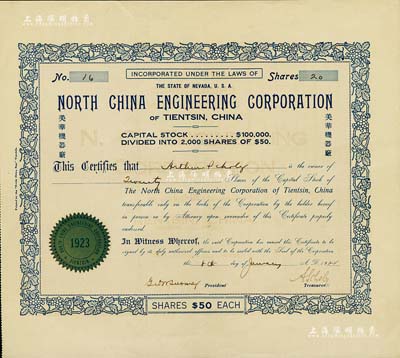 上海陽明拍賣
INCORPORATED UNDER THE LAWS OF
No. 16
Shares 20
THE STATE OF NEVADA, U. S. A.
NORTH CHINA ENGINEERING CORPORATION
OF TIENTSIN, CHINA
美華機器廠
美華機器廠
CAPITAL STOCK .......... $100,000.
DIVIDED INTO 2,000 SHARES OF $50.
This Certifies that Arthur Scholz is the owner of
Twenty Shares of the Capital Stock of
The North China Engineering Corporation of Tientsin, China
transferable only on the books of the Corporation by the holder hereof
in person or by Attorney upon surrender of this Certificate properly
endorsed.
In Witness Whereof, the said Corporation has caused this Certificate to be
signed by its duly authorized officers and to be sealed with the Seal of the Corporation
the 8th day of January A. D. 1924
1923
President
Treasurer
SHARES $50 EACH